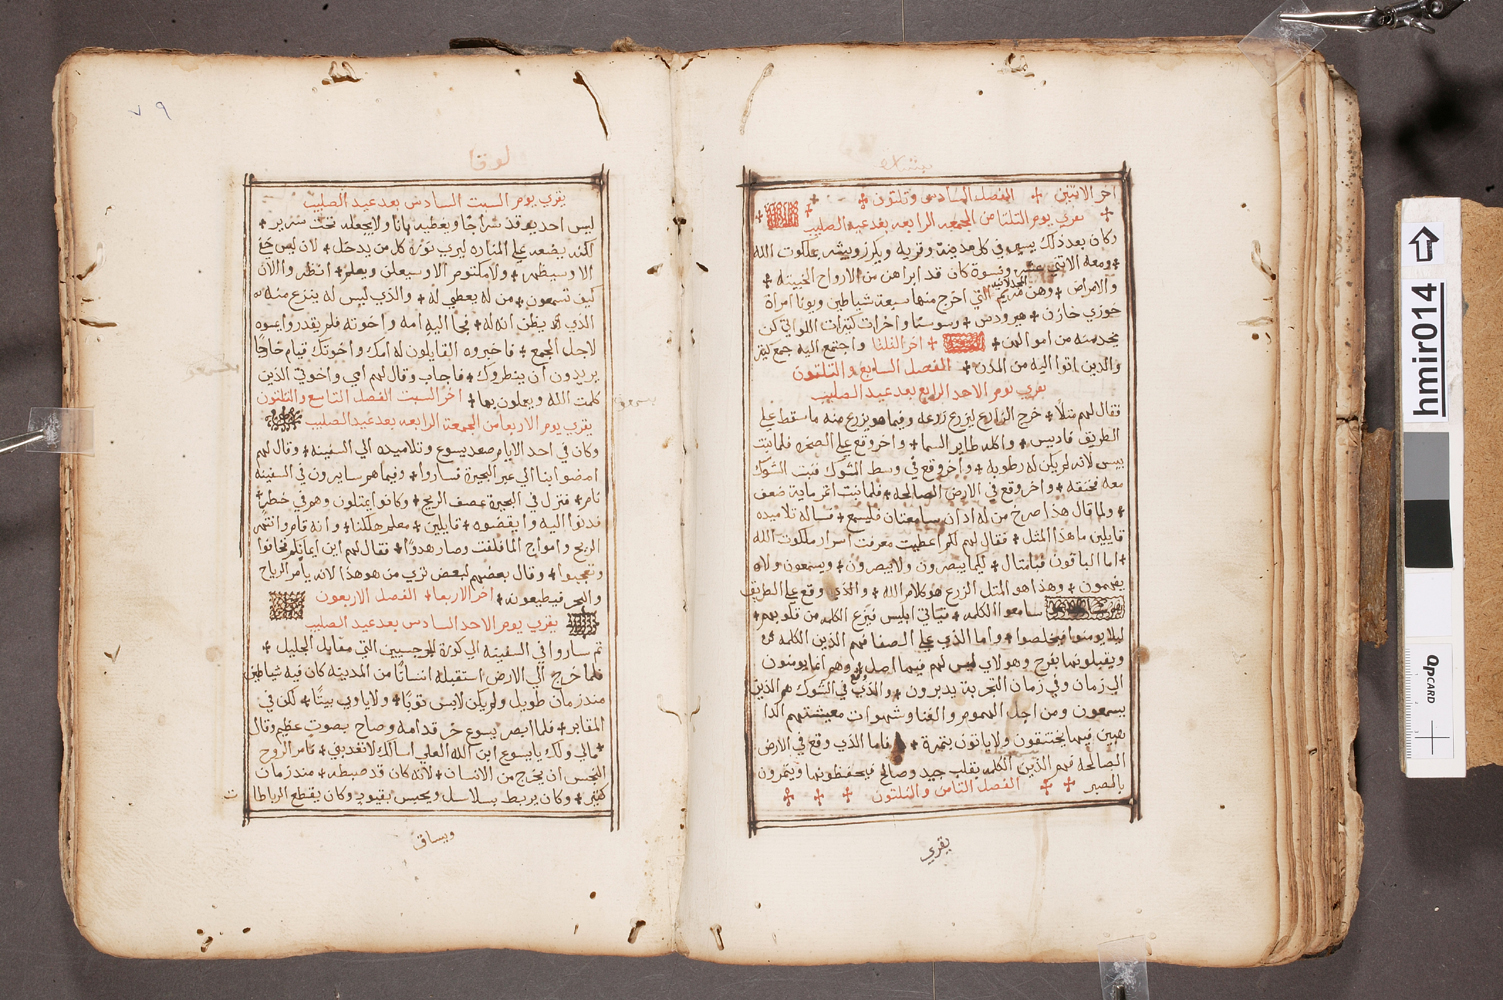 بشاره
اخر الاتنين + الفصل السادس وتلتون +
يقري يوم التلتا من الجمعه الرابعه بعد عيد الصليب
وكان بعد ذلك يسير في كل مدينه وقريه ويكرز ويبشر بملكوت الله
+ ومعه الاتني عشر ونسوة كان قد ابراهن من الارواح الخبيته +
والامراض + وهن مريم المجدلانيه التي اخرج منها سبعة شياطين ويونا امراة
خوزي خازن + هيرودس + وسوسنا واخرات كتيرات اللواتي كن
يخدمنه من اموالهن + اخر التلتا واجتمع اليه جمع كتير
والذين اتوا اليه من المدن + الفصل السابع والتلتون
يقري يوم الاحد الرابع بعد عيد الصليب
فقال لهم متلا + خرج الزارع ليزرع زرعه وفيما هو يزرع منه ما سقط علي
الطريق فاديس + واكله طاير السما + واخر وقع علي الصخره فلما نبت
يبس لانه لم يكن له رطوبه + واخر وقع في وسط الشوك فنبت الشوك
معه فخنقه + واخر وقع في الارض الصالحه + فلما نبت اتمر ماية ضعف
+ ولما قال هذا صرخ من له اذان سامعتان فليسمع + فساله تلاميده
قايلين ما هذا المتل + فقال لهم لكم اعطيت معرفت اسرار ملكوت الله
+ اما الباقون فبامتال + لكيما يبصرون ولا يبصرون + ويسمعون ولا
يفهمون + وهذا هو المتل الزرع هو كلام الله + والذي وقع علي الطريق
سامعوا الكلمه + فياتي ابليس فينزع الكلمه من قلوبهم +
ليلا يومنوا فيخلصوا + واما الذي علي الصفا فهم الذين الكلمه
ويقبلونها بفرح وهولاي ليس لهم فيها اصل + وهم انما يومنون
الي زمان وفي زمان التجربة يدبرون + والذي وقع في الشوك هم الذين
يسمعون ومن اجل الهموم والغنا وشهوات معيشتهم
فيها يختنقون ولا ياتون بتمرة + فاما الذي وقع في الارض
الصالحه فهم الذين الكلمه بقلب جيد وصالح فيحفظونها ويتمرون
بالصبر + + الفصل التامن والتلتون + + +
يقري
٧٩
لوقا
يقري يوم السبت السادس بعد عيد الصليب
ليس احد يوقد سراجا ويغطيه باناا ولا يجعله تحت سرير +
لكنه يضعه علي المناره ليري نوره كل من يدخل + لان ليس خفي
الا وسيظهر + ولا مكتوم الا وسيعلن ويعلم + انظروا الان
كيف تسمعون + من له يعطي له + والذي ليس له ينزع منه
الذي يظن انه له + فجا اليه امه واخوته فلم يقدروا
لاجل الجمع + فاخبروه القايلون له امك واخوتك قيام خارجا
يريدون ان ينظروك + فاجاب وقال لهم امي واخوتي الذين
كلمت الله ويعملون بها + اخر السبت الفصل التاسع والتلتون
يقري يوم الاربعا من الجمعة الرابعه بعد عيد الصليب
وكان في احد الايام صعد يسوع وتلاميده الي السفينه + وقال لهم
امضوا بنا الي عبر البحيرة فساروا + وفيما هم سايرون في السفينه
نام + فنزل في البحيرة عصف الريح + وكانوا يمتلون وهم في خطر
فدنوا اليه وايقضوه + قايلين + معلم هلكنا + وانه قام وانتهر
الريح وامواج الما فلفت وصار هدوا + فقال لهم اين ايمانكم فخافوا
وتعجبوا + وقال بعضهم لبعض تري من هو هذا لانه يامر الرياح
والبحر فيطيعونه + اخر الاربعا + الفصل الاربعون
يقري يوم الاحد السادس بعد عيد الصليب
تم ساروا في السفينه الي كورة الجرجسيين التي مقابل الجليل +
فلما خرج الي الارض استقبله انسانا من المدينه كان فيه شياطين
مند زمان طويل ولم يكن لابس توبا + ولا ياوي بيتا + لكن في
المقابر + فلما ابصر يسوع خر قدامه وصاح بصوت عظيم وقال
+ مالي ولك يا يسوع ابن الله العلي اسالك لا تعدبني + فامر الروح
النجس ان يخرج من الانسان + لانه كان قد ضبطه + مند زمان
كتير + وكان يربط بسلاسل ويحبس بقيود وكان يقطع الرباطا
ت
ويساق
hmir014
QpCARD